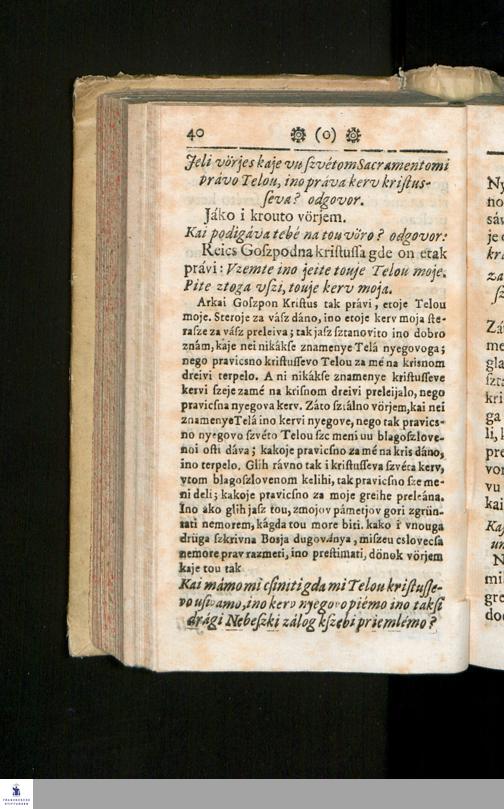 40 (o)
Jeli vörjes kaje vu ſzvétom Sacramentomi
právo Telou, ino práva kerv kriſtus-
ſeva? odgovor.
Jáko i krouto vörjem.
Kai podigáva tebé na tou vöro? odgovor:
Reics Goſzpodna kriſtuſſa gde on etak
právi: Vzemte ino jeite touje Telou moje.
Pite ztoga vſzi, touje kerv moja.
Arkai Goſzpon Kriſtus tak právi, etoje Telou
moje. Steroje za váſz dáno, ino etoje kerv moja ſte-
raſze za váſz preleiva; tak jaſz ſztanovito ino dobro
znám, kaje nei nikákſe znamenye Telá nyegovoga;
nego pravicsno kriſtuſſevo Telou za mé na krisnom
dreivi terpelo. A ni nikákſe znamenye kriſtuſſeve
kervi ſzeje zamé na kriſnom dreivi preleijalo, nego
pravicſna nyegova kerv. Záto ſziálno vörjem, kai nei
znamenye Telá ino kervi nyegove, nego tak pravics-
no nyegovo ſzvéto Telou ſze meni uu blagoſzlove-
noi oſti dáva; kakoje pravicſno za mé na kris dáno,
ino terpelo. Glih rávno tak i kriſtuſſeva ſzvéta kerv,
vtom blagoſzlovenom kelihi, tak pravicſno ſze me-
ni deli; kakoje pravicſno za moje greihe preleána.
Ino áko glih jaſz tou, zmojov pámetjov gori zgrün-
tati nemorem, kágda tou more biti. kako i vnouga
drüga ſzkrivna Bosja dugoványa, miſzeu cslovecſa
nemore prav razmeti, ino preſtimati, dönok vörjem
kaje tou tak
Kai mámo mi cſiniti gda mi Telou kriſtuſſe-
vo uſivamo, ino kerv nyegovo piémo ino takſi
drági Nebeſzki zálog kſzebi priemlémo?